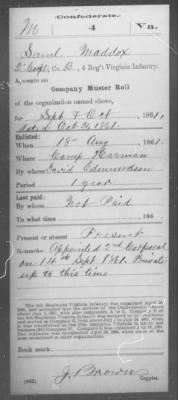 Confederate.
M 4 Va.
Saml Maddox
2' Corpl, Co. B, 4 Reg't Virginia Infantry.
Appears on
Company Muster Roll
of the organization named above,
for Sept & Oct, 1861.
dated Oct 31, 1861.
Enlisted:
When 18 Aug, 1861.
Where Camp Harman
By whom David Edmundson
Period 1 year
Last paid:
By whom Not Paid
To what time , 186 .
Present or absent Present
Remarks: Appointed 2nd Corporal
on 14th Sept 1861. Private
up to this time.
Book mark:
J. P. Brower
(642) Copyist.